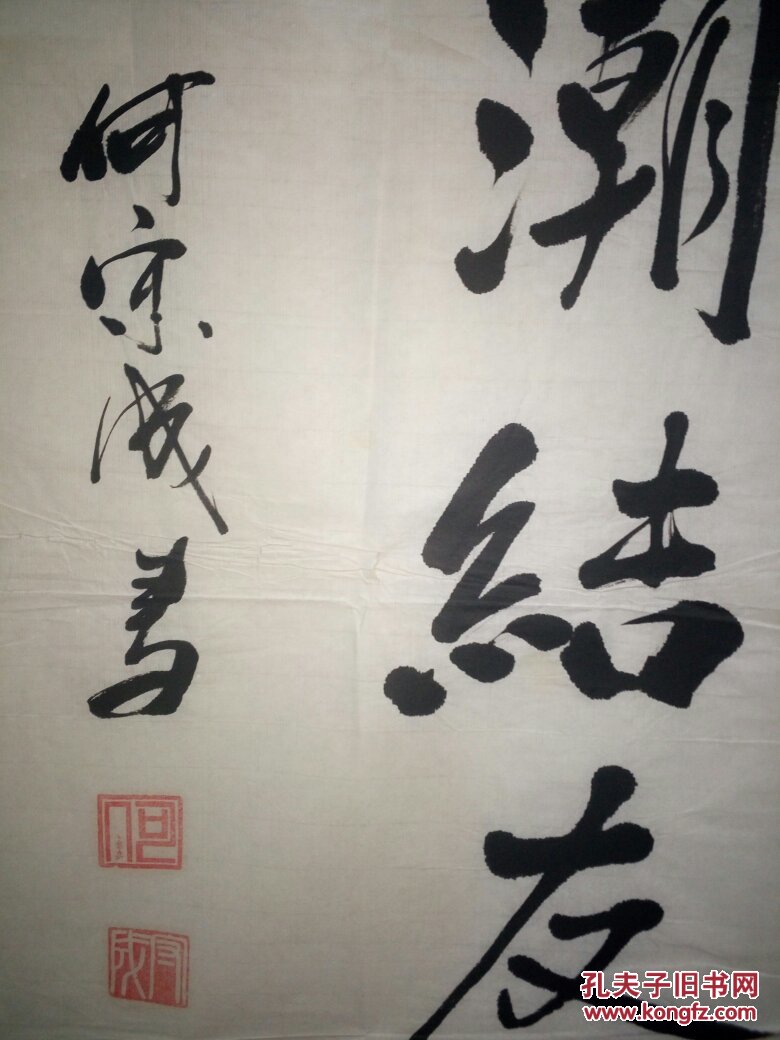 潮結友
何宗成書
孔夫子旧书网
www.kongfz.com